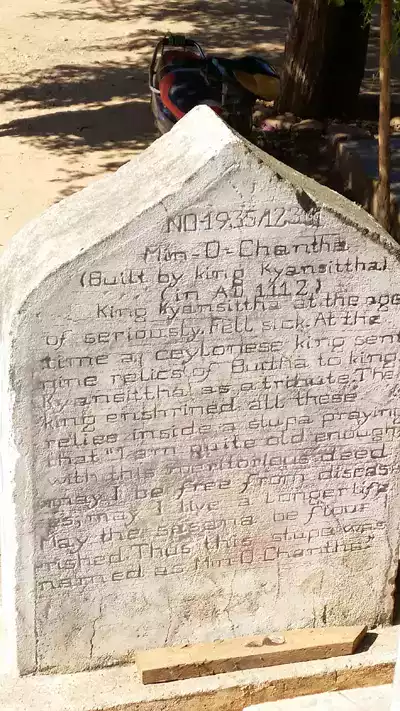 NO-1935/123
Min-O-Chantha
(Built by king Kyansittha)
(in AD 1112)
King Kyansittha at the age
of seriously. Fell sick. At the
time a ceylonese king sent
nine relics of Budha to king
Kyansittha as a tribute. The
king enshrined all these
relics inside a stupa praying
that "I am Quite old enough
with this meritorious deed
may I be free from diseas
es, may I live a longer life
May the sasana be flour
rished. Thus this stupa was
named as Min-O-Chantha."